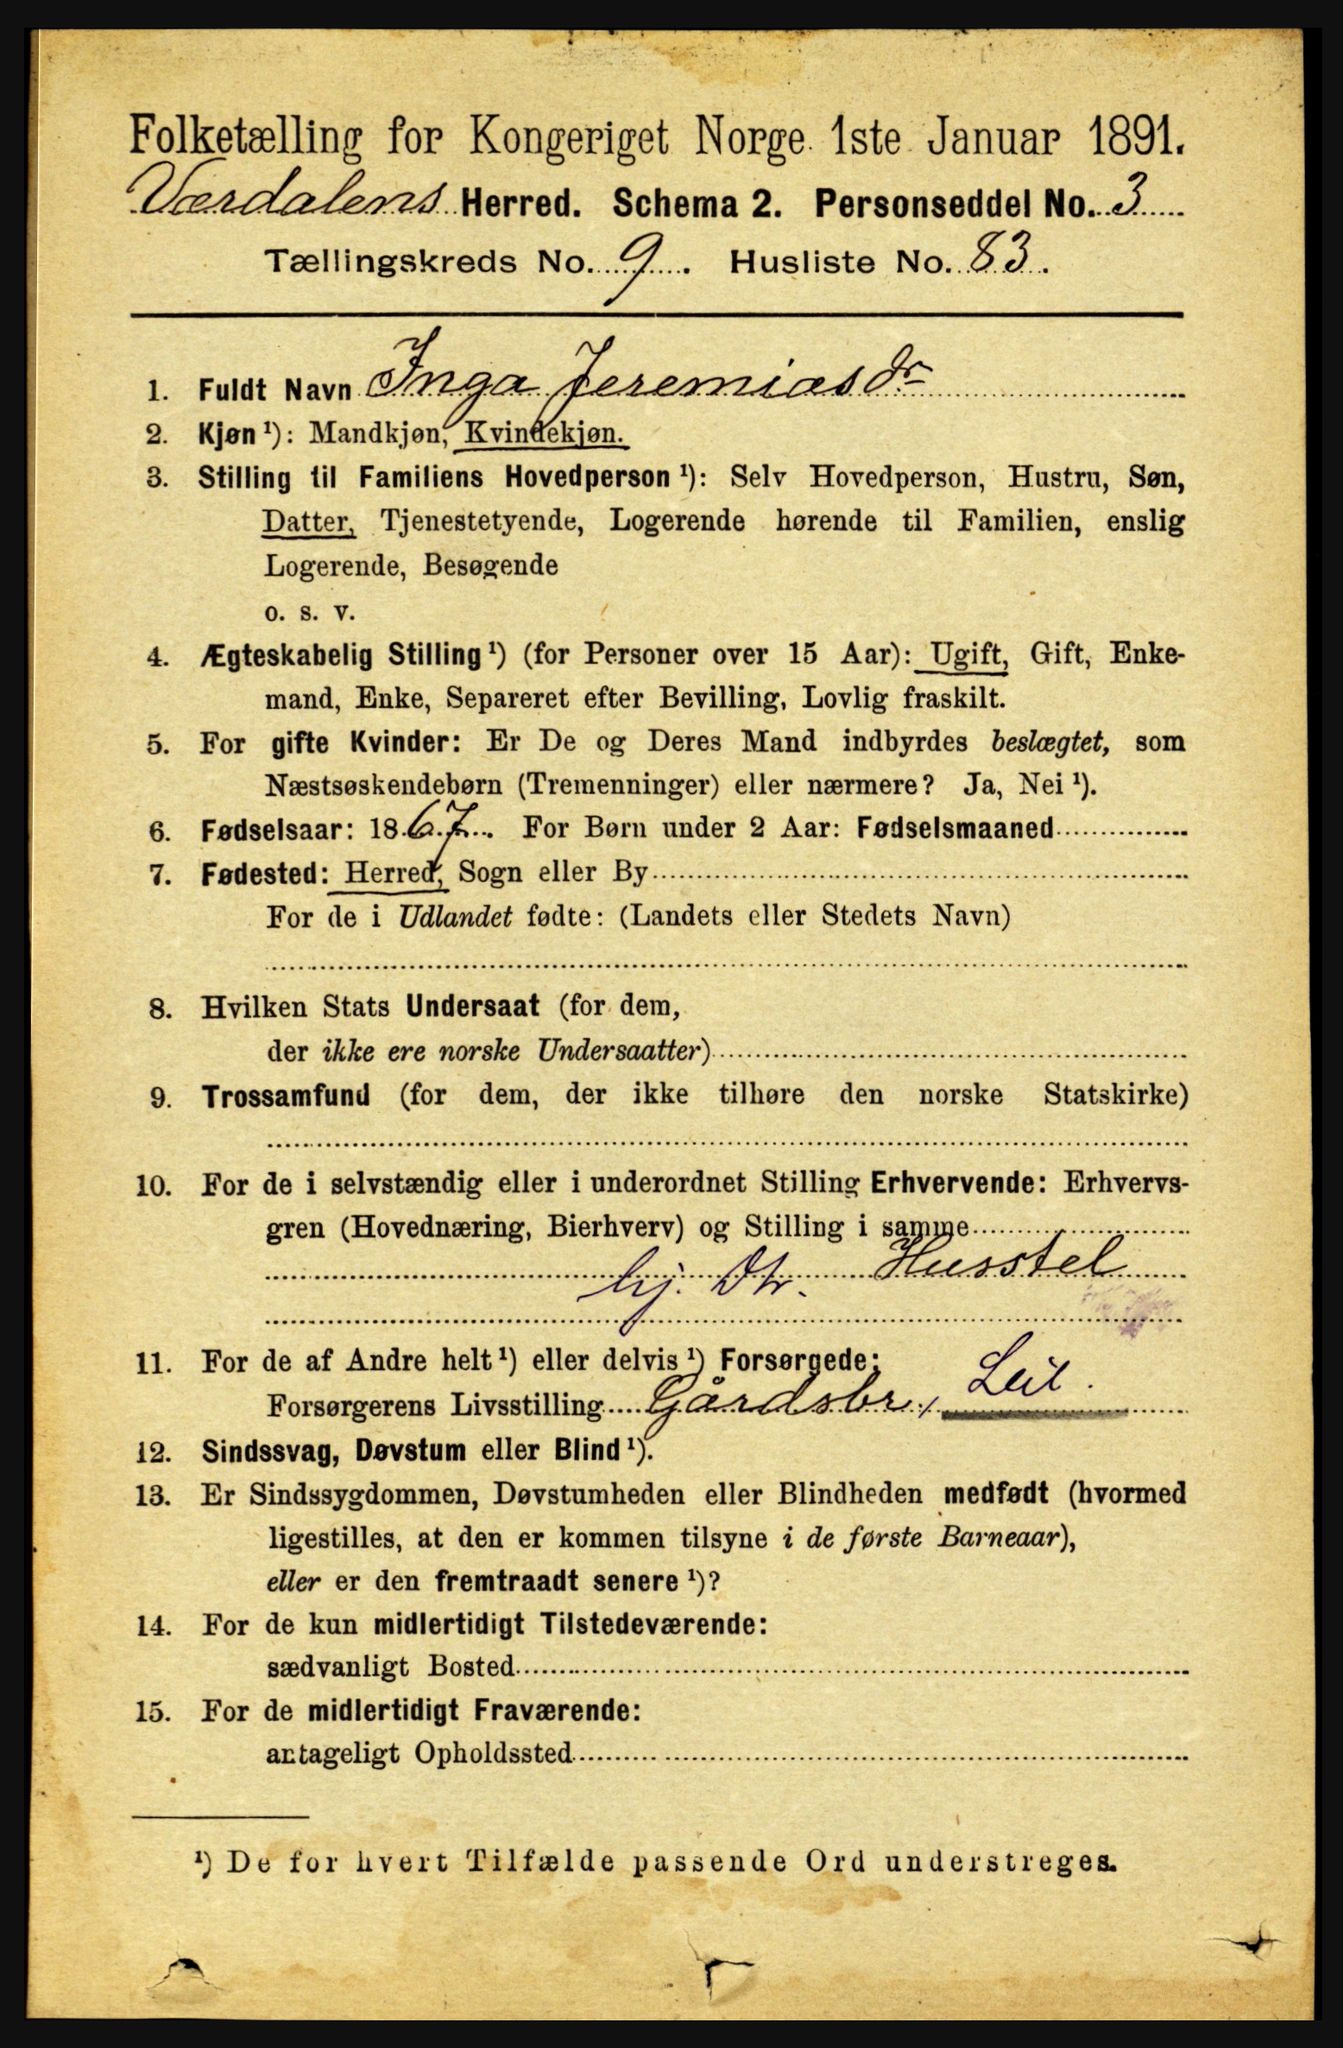 Folketælling for Kongeriget Norge 1ste Januar 1891.
Værdalens Herred. Schema 2. Personseddel No. 3
Tællingskreds No. 9. Husliste No. 83.
1. Fuldt Navn Inga Jeremiasdr
2. Kjøn ¹): Mandkjøn, Kvindekjøn.
3. Stilling til Familiens Hovedperson ¹): Selv Hovedperson, Hustru, Søn,
Datter, Tjenestetyende, Logerende hørende til Familien, enslig
Logerende, Besøgende
o. s. v.
4. Ægteskabelig Stilling ¹) (for Personer over 15 Aar): Ugift, Gift, Enke-
mand, Enke, Separeret efter Bevilling, Lovlig fraskilt.
5. For gifte Kvinder: Er De og Deres Mand indbyrdes beslægtet, som
Næstsøskendebørn (Tremenninger) eller nærmere? Ja, Nei ¹).
6. Fødselsaar: 1867. For Børn under 2 Aar: Fødselsmaaned
7. Fødested: Herred, Sogn eller By
For de i Udlandet fødte: (Landets eller Stedets Navn)
8. Hvilken Stats Undersaat (for dem,
der ikke ere norske Undersaatter)
9. Trossamfund (for dem, der ikke tilhøre den norske Statskirke)
10. For de i selvstændig eller i underordnet Stilling Erhvervende: Erhvervs-
gren (Hovednæring, Bierhverv) og Stilling i samme
hj. Dtr. Husstel
11. For de af Andre helt ¹) eller delvis ¹) Forsørgede:
Forsørgerens Livsstilling Gårdsbr, Leil.
12. Sindssvag, Døvstum eller Blind ¹).
13. Er Sindssygdommen, Døvstumheden eller Blindheden medfødt (hvormed
ligestilles, at den er kommen tilsyne i de første Barneaar),
eller er den fremtraadt senere ¹)?
14. For de kun midlertidigt Tilstedeværende:
sædvanligt Bosted
15. For de midlertidigt Fraværende:
antageligt Opholdssted
¹) De for hvert Tilfælde passende Ord understreges.